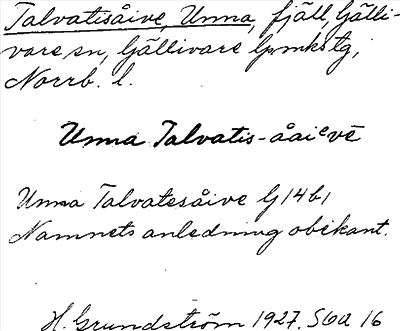 Talvatisåive, Unna, fjäll, Gälli-
vare sn, Gällivare lpmkstg,
Norrb. l.
Unna Talvatis-åaiᵉvē
Unna Talvatesåive G 14 b,
Namnets anledning obekant.
H. Grundström 1927. Sba 16